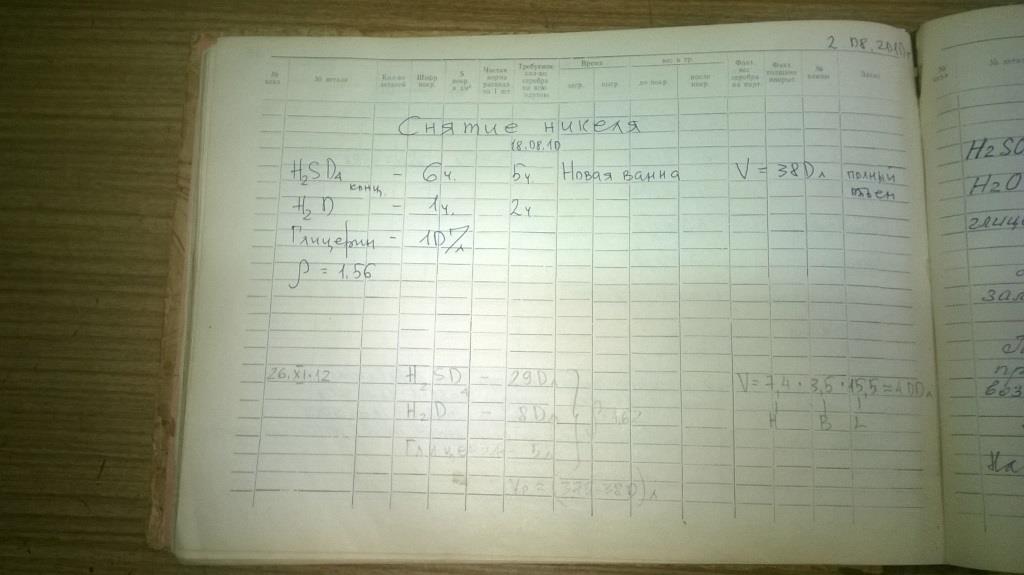 2.08.2010г
№ п/п № детали Кол-во деталей Шифр покр. S покр. в дм² Чистая норма расхода на 1 шт. Требуемое кол-во серебра на всю партию Время загр. выгр. вес в гр. до покр. после покр. Факт. вес серебра на парт. Факт. толщина покрыт. № ванны
Снятие никеля
18.08.10
H₂SO₄ конц. - 6ч. 5ч Новая ванна V = 380л полный объем
H₂O - 1ч. 2ч
Глицерин - 10г/л
ρ = 1,56
26.XI.12 H₂SO₄ - 290л V = 7,4 · 3,5 · 15,5 ≈ 400л
H₂O - 80л ρ = 1,62 H B L
Глицерин - 5л
H₂SO
H₂O
глиц
зал
пр
воз
На